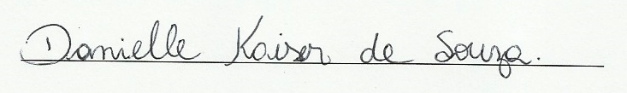 Danielle Kaiser de Souza.